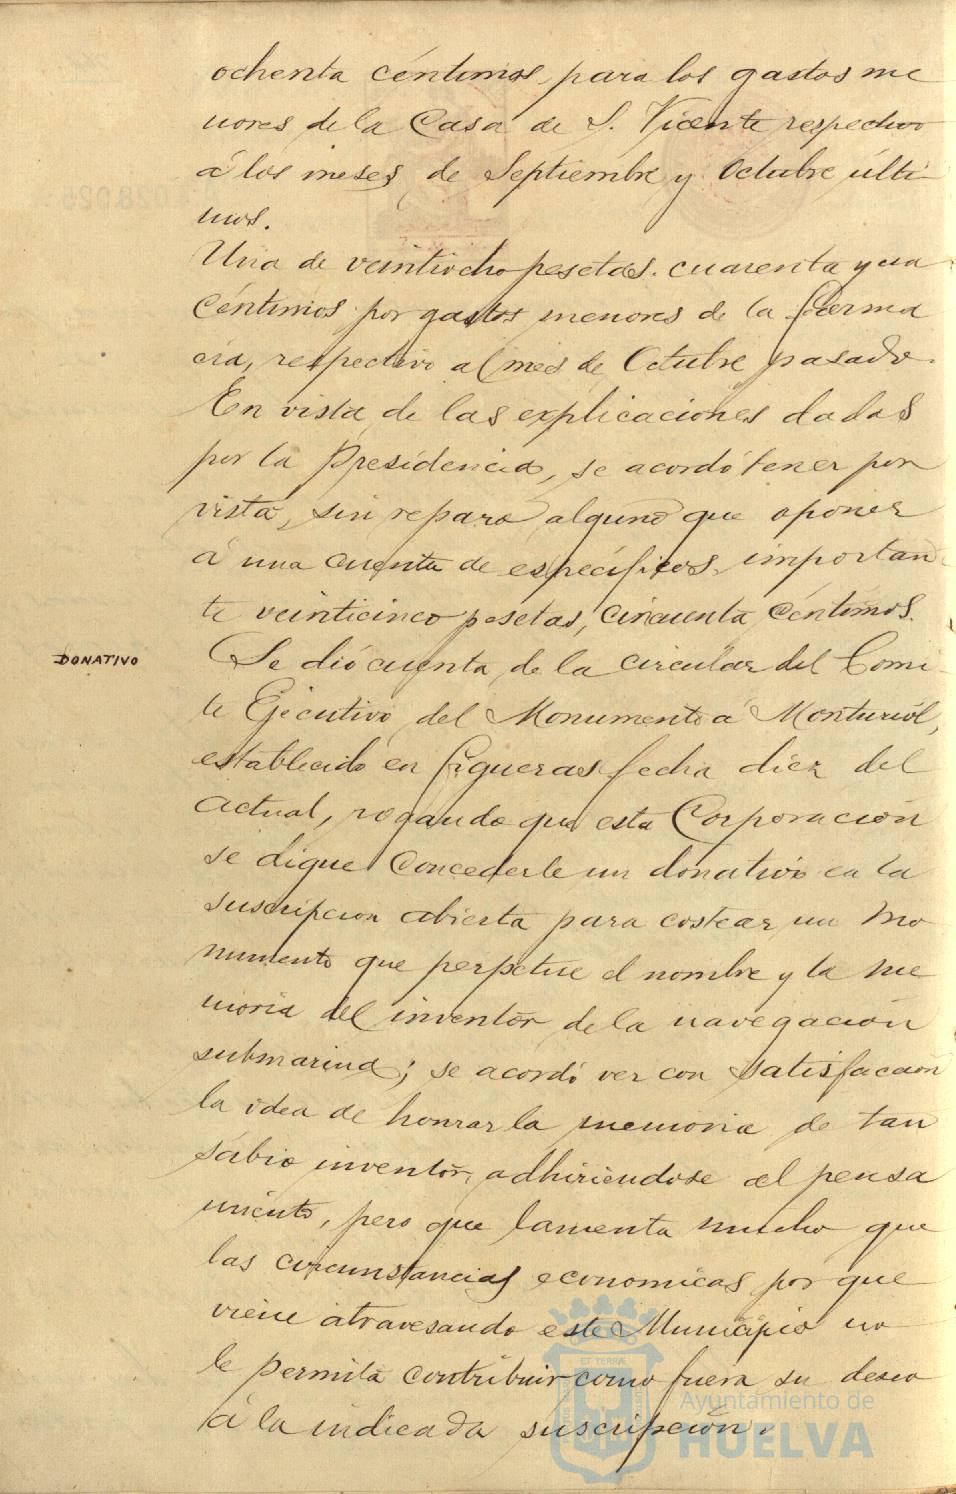 ochenta céntimos, para los gastos me
nores de la Casa de S. Vicente respectivo
á los meses de Septiembre y Octubre últi-
mos.
Una de veintiocho pesetas. cuarenta y un
céntimos por gastos menores de la farma
cia, respectivo al mes de Octubre pasado.
En vista de las explicaciones dadas
por la Presidencia, se acordó tener por
vista, sin reparo alguno que oponer
á una cuenta de específicos, importan
te veinticinco pesetas, cincuenta céntimos.
DONATIVO
Se dió cuenta de la circular del Comi-
te Ejecutivo del Monumento á Monturiol,
establecido en Figueras fecha diez del
actual, rogando que esta Corporación
se digne concederle un donativo en la
suscripcion abierta para costear un Mo
numento que perpetue el nombre y la me
moria del inventor de la navegación
submarina; se acordó ver con satisfacción
la idea de honrar la memoria de tan
sabio inventor, adhiriendose al pensa
miento, pero que lamenta mucho que
las circunstancias economicas por que
viene atravesando este Municipio no
le permita contribuir como fuera su deseo
á la indicada suscripción.
Ayuntamiento de
HUELVA